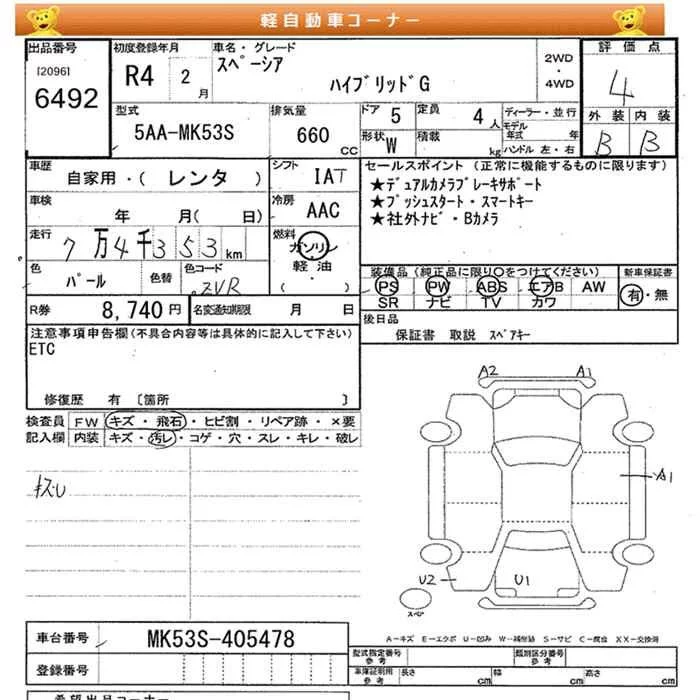 軽自動車コーナー
出品番号
[2096]
6492
初度登録年月
R4 2月
車名・グレード
スペーシア
ハイブリッドG
2WD
・
4WD
評価点
4
外装 内装
B B
型式
5AA-MK53S
排気量
660 cc
ドア 5
定員 4人
形状 W
積載 kg
ディーラー・並行
モデル年式 年
ハンドル 左・右
車歴
自家用・( レンタ )
シフト
IAT
車検
年 月( 日)
冷房
AAC
走行
7万4千353km
燃料
ガソリン
軽油
( )
色
パール
色替
色コード
ZVR
R券 8,740円
名変通知期限 月 日
セールスポイント (正常に機能するものに限ります)
★デュアルカメラブレーキサポート
★プッシュスタート・スマートキー
★社外ナビ・Bカメラ
装備品(純正品に限り○をつけてください)
PS PW ABS エアB AW
SR ナビ TV カワ
新車保証書
有・無
後日品
保証書 取説 スペアキー
注意事項申告欄(不具合内容等は具体的に記入して下さい)
ETC
修復歴 有 [箇所 ]
検査員記入欄
FW キズ・飛石・ヒビ割・リペア跡・×要
内装 キズ・汚レ・コゲ・穴・スレ・キレ・破レ
キズ・U
A2 A1
A1
U2 U1
スペア
A-キズ E-エクボ U-凹み W-補修跡 S-サビ C-腐食 XX-交換済
車台番号 MK53S-405478
登録番号
型式指定番号 参考
類別区分番号 参考
車庫証明用 参考
長さ cm 幅 cm 高さ cm
希望出品コーナー